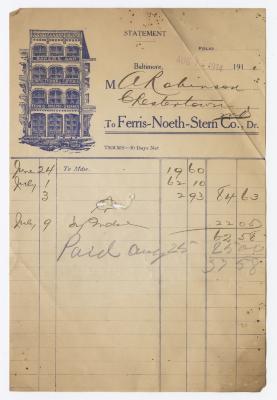 STATEMENT
FOLIO
AUG 1914
Baltimore, 191
M A Robinson
Chestertown
To Ferris-Noeth-Stern Co., Dr.
TERMS—30 Days Net
June 24 To Mdse. 19 60
July 1 62 10
3 2 93 84 63
July 9 22 05
62 58
Paid Aug 25 25 00
37 58